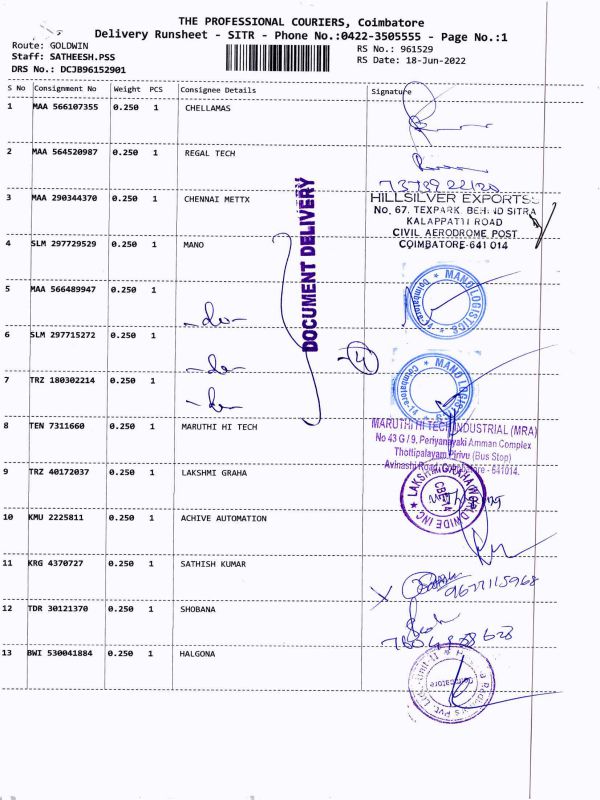 THE PROFESSIONAL COURIERS, Coimbatore
Delivery Runsheet - SITR - Phone No.:0422-3505555 - Page No.:1
Route: GOLDWIN
RS No.: 961529
Staff: SATHEESH.PSS
RS Date: 18-Jun-2022
DRS No.: DCJB96152901
S No Consignment No Weight PCS Consignee Details Signature
1 MAA 566107355 0.250 1 CHELLAMAS
2 MAA 564520987 0.250 1 REGAL TECH
3 MAA 290344370 0.250 1 CHENNAI METTX
HILLSILVER EXPORTS
No. 67, TEXPARK, BEHIND SITRA
KALAPPATTI ROAD
CIVIL AERODROME POST
COIMBATORE-641 014
DOCUMENT DELIVERY
4 SLM 297729529 0.250 1 MANO
MANO LOGISTICS
Coimbatore-14
5 MAA 566489947 0.250 1
-do-
6 SLM 297715272 0.250 1
-do-
4
MANO LOGISTICS
Coimbatore-14
7 TRZ 180302214 0.250 1
-do-
8 TEN 7311660 0.250 1 MARUTHI HI TECH
MARUTHI HI TECH INDUSTRIAL (MRA)
No 43 G / 9, Periyanayaki Amman Complex
Thottipalayam Pirivu (Bus Stop)
Avinashi Road, Coimbatore - 641014.
9 TRZ 40172037 0.250 1 LAKSHMI GRAHA
LAKSHMI GRAHA WORLDWIDE INC.
CBE-14
10 KMU 2225811 0.250 1 ACHIVE AUTOMATION
11 KRG 4370727 0.250 1 SATHISH KUMAR
9677115968
12 TDR 30121370 0.250 1 SHOBANA
13 BWI 530041884 0.250 1 HALGONA
Coimbatore